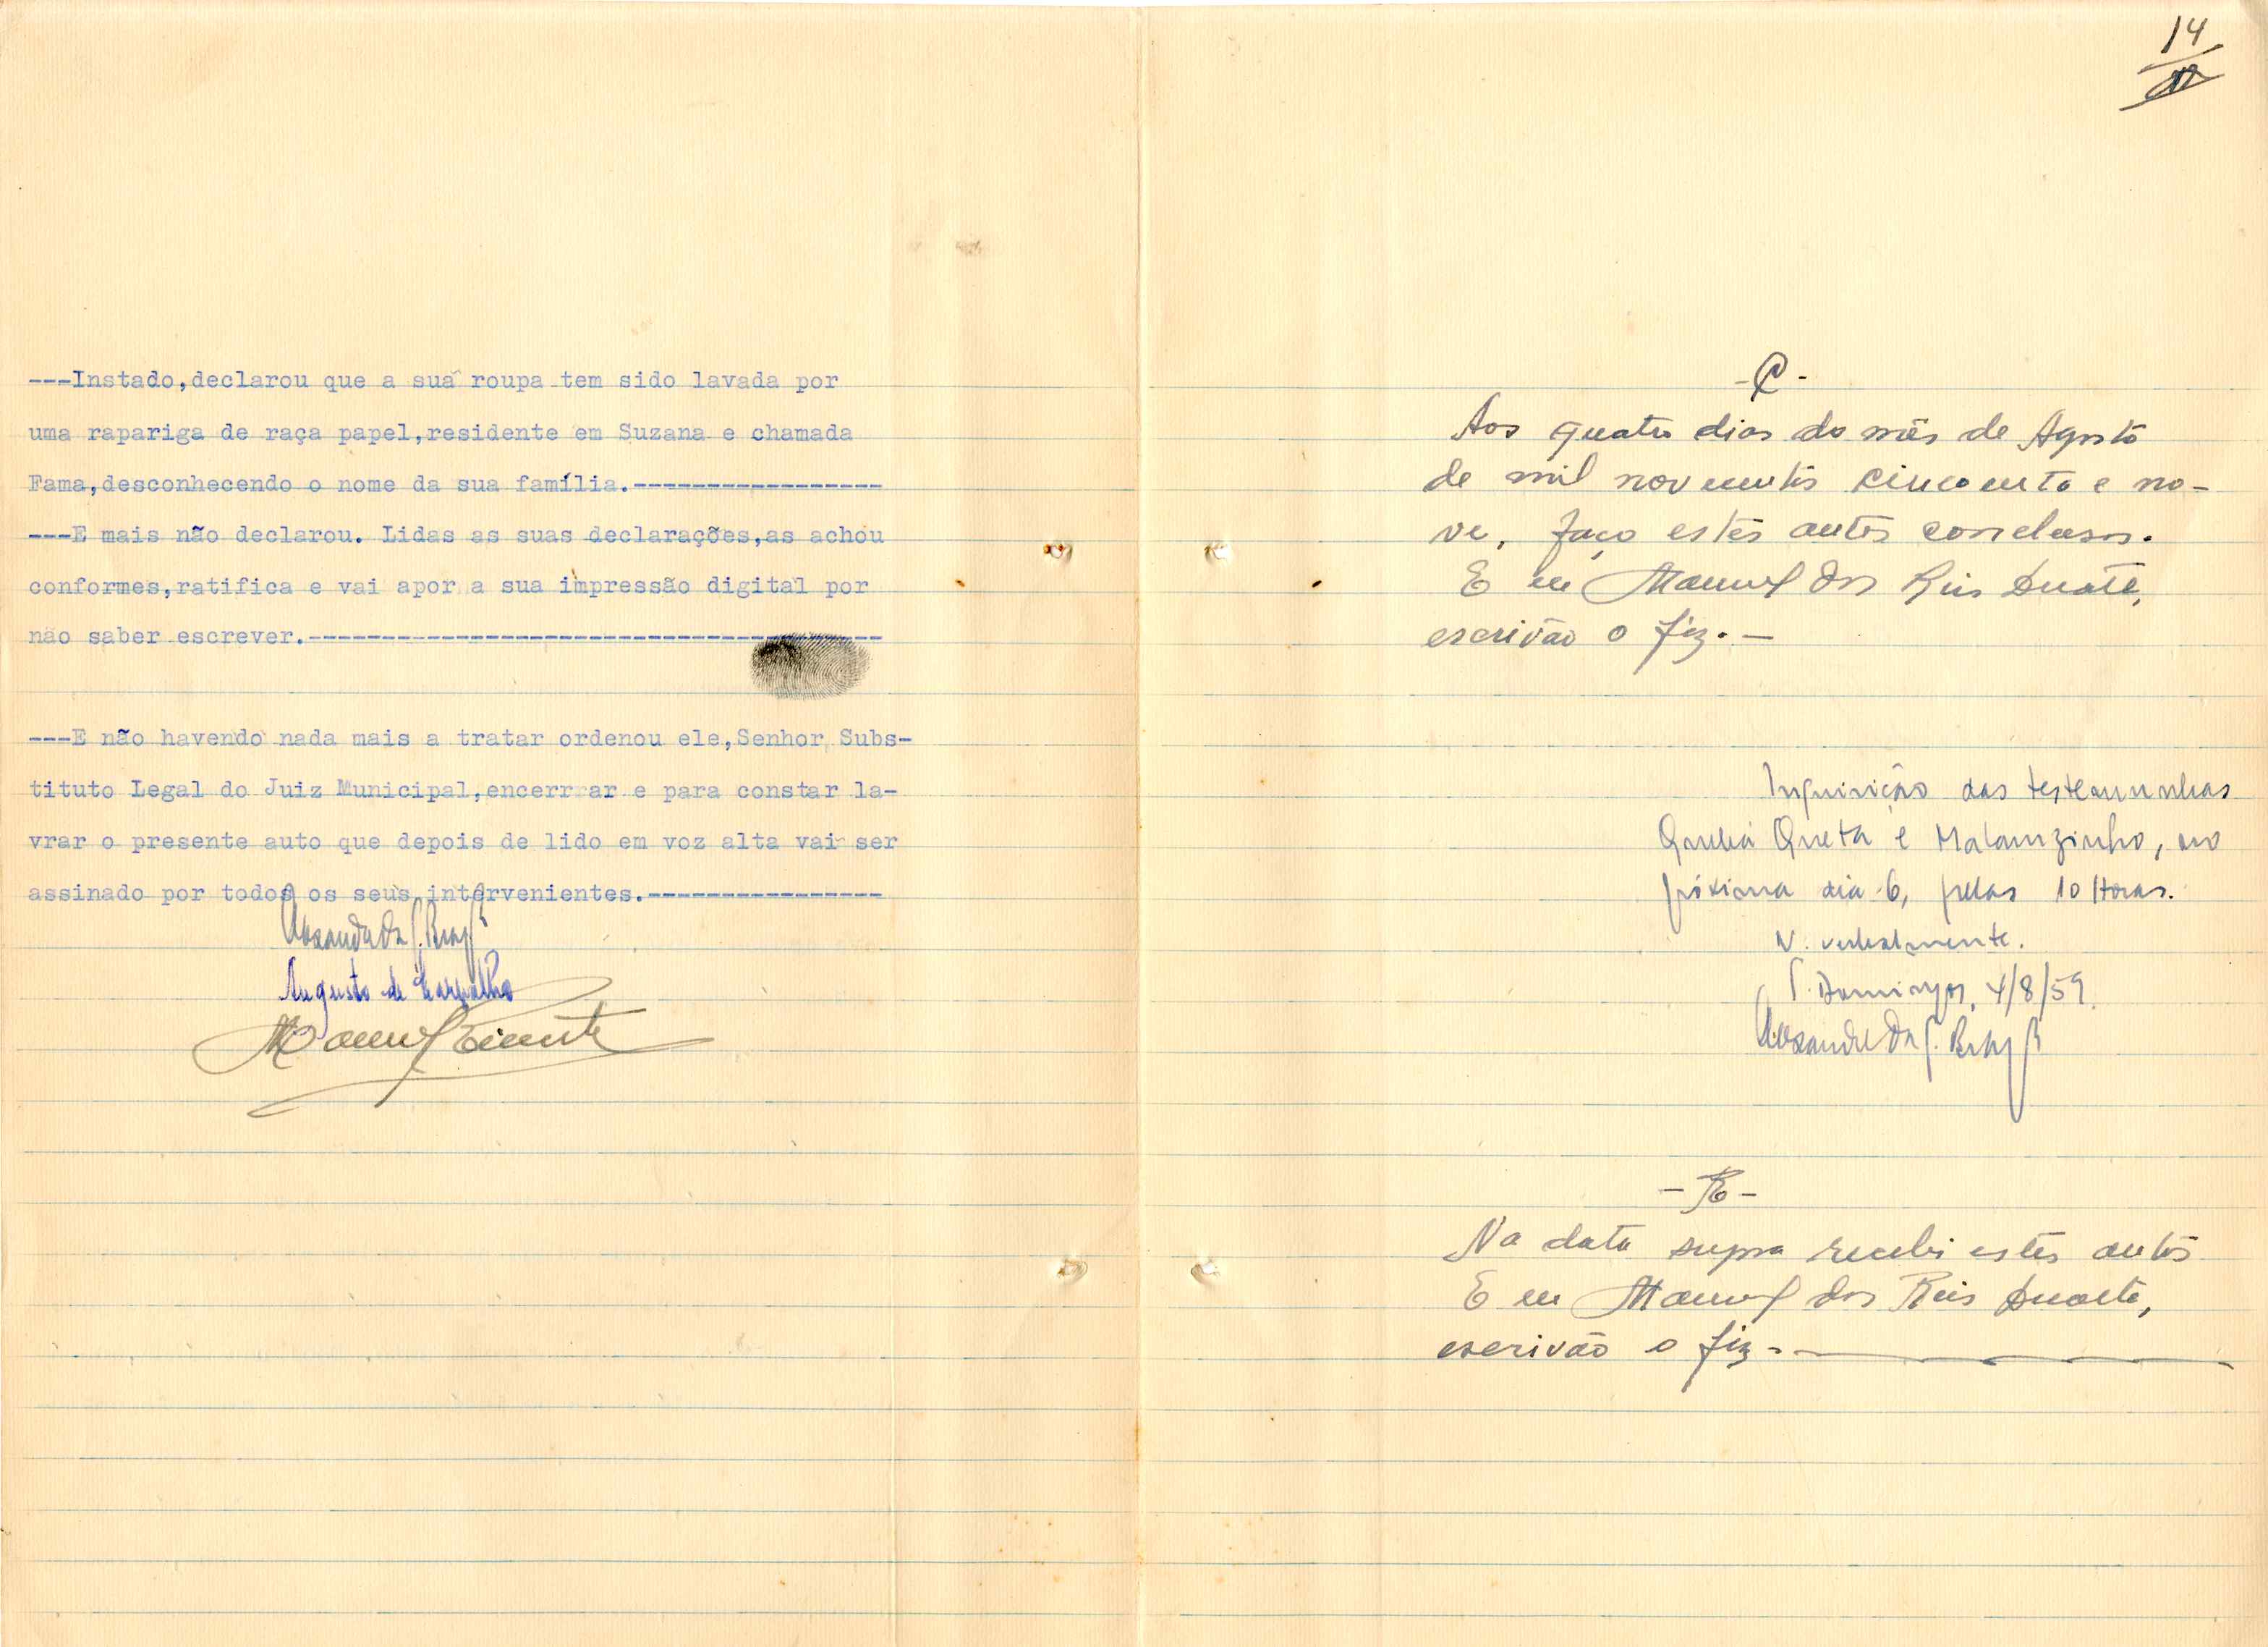 ---Instado,declarou que a sua roupa tem sido lavada por
uma rapariga de raça papel,residente em Suzana e chamada
Fama,desconhecendo o nome da sua família.-----------------
---E mais não declarou. Lidas as suas declarações,as achou
conformes,ratifica e vai apor a sua impressão digital por
não saber escrever.---------------------------------------
---E não havendo nada mais a tratar ordenou ele,Senhor Subs-
tituto Legal do Juiz Municipal,encerrrar e para constar la-
vrar o presente auto que depois de lido em voz alta vai ser
assinado por todos os seus intervenientes.----------------
Augusto de Carvalho
Manuel
14
-C-
Aos quatro dias do mês de Agosto
de mil novecentos cincoenta e no-
ve, faço estes autos conclusos.
E eu Manuel dos Reis Duarte,
escrivão o fiz.—
Inquirição das testemunhas
Queta e Malamzinho, no
próximo dia 6, pelas 10 Horas.
N. verbalmente.
S. Domingos, 4/8/59.
-R-
Na data supra recebi estes autos
E eu Manuel dos Reis Duarte,
escrivão o fiz.—